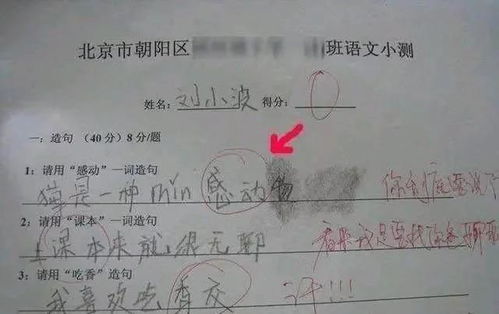 北京市朝阳区 班语文小测
姓名: 刘小波 得分: 0
一: 造句 (40分) 8分/题
1: 请用“感动”一词造句
猫是一种min感动物 你 我 说了
2: 请用“课本”一词造句
上课本来就很无聊 看来我是 找你 聊聊
3: 请用“吃香”造句
我喜欢吃香交 汗!!!